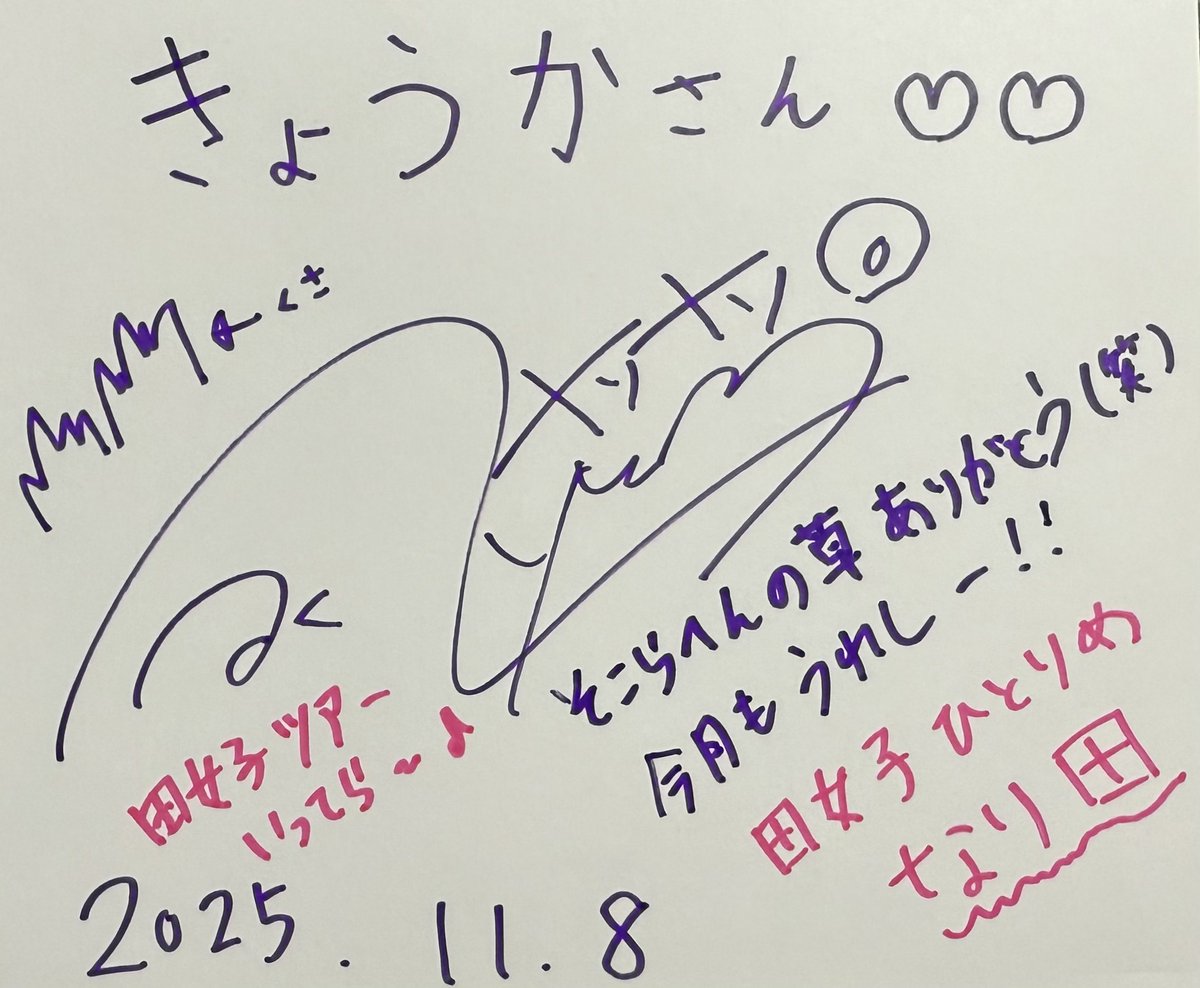 きょうかさん♡♡
←くさ
そこらへんの草ありがとう(笑)
今月もうれしー!!
田女子ツアー
いってら〜♪
田女子ひとりめ
なり田
2025.11.8